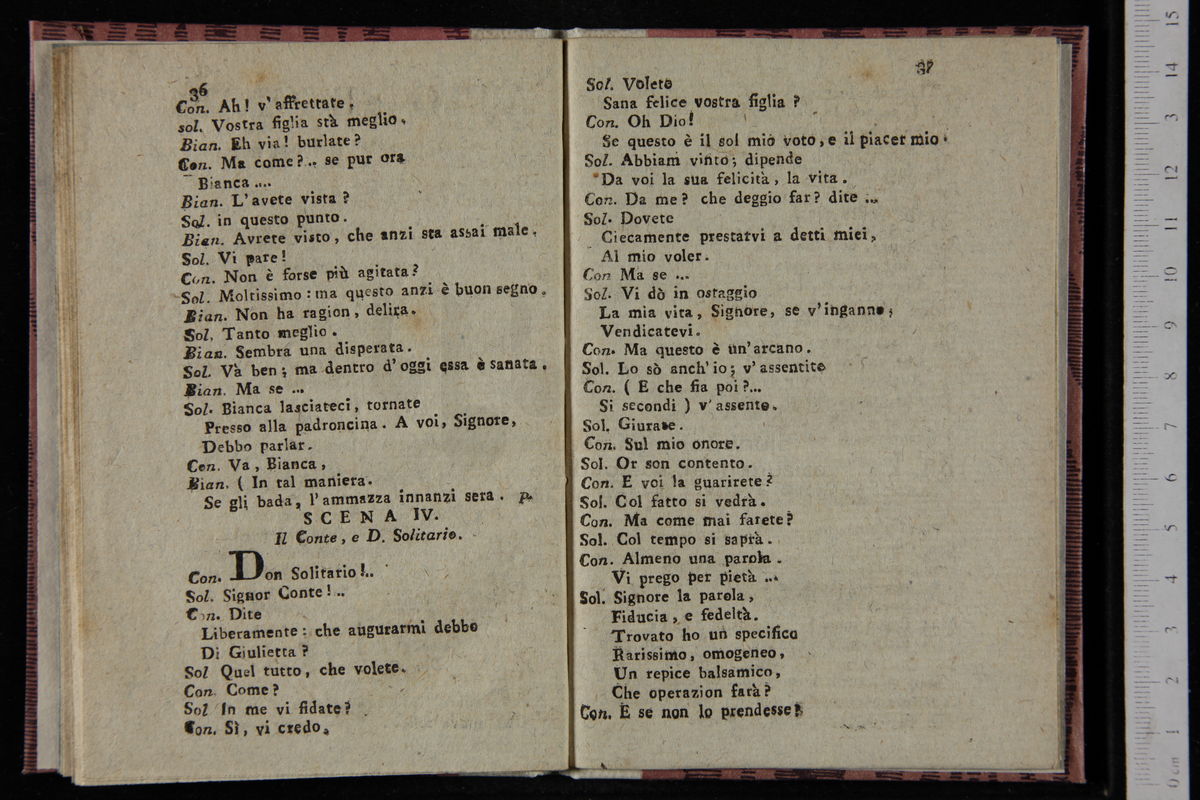 36
Con. Ah! v'affrettate.
sol. Vostra figlia stà meglio.
Bian. Eh via! burlate?
Con. Ma come?.. se pur ora
Bianca ....
Bian. L'avete vista?
Sol. in questo punto.
Bian. Avrete visto, che anzi sta assai male.
Sol. Vi pare!
Con. Non è forse più agitata?
Sol. Moltissimo: ma questo anzi è buon segno.
Bian. Non ha ragion, delira.
Sol. Tanto meglio.
Bian. Sembra una disperata.
Sol. Và ben; ma dentro d'oggi essa è sanata.
Bian. Ma se ...
Sol. Bianca lasciateci, tornate
Presso alla padroncina. A voi, Signore,
Debbo parlar.
Con. Va, Bianca,
Bian. ( In tal maniera.
Se gli bada, l'ammazza innanzi sera. p.
SCENA IV.
Il Conte, e D. Solitario.
Con. Don Solitario!..
Sol. Signor Conte!..
Con. Dite
Liberamente: che augurarmi debbo
Di Giulietta?
Sol Quel tutto, che volete.
Con. Come?
Sol In me vi fidate?
Con. Sì, vi credo.
37
Sol. Volete
Sana felice vostra figlia?
Con. Oh Dio!
Se questo è il sol mio voto, e il piacer mio.
Sol. Abbiam vinto; dipende
Da voi la sua felicità, la vita.
Con. Da me? che deggio far? dite ...
Sol. Dovete
Ciecamente prestarvi a detti miei,
Al mio voler.
Con Ma se ...
Sol. Vi dò in ostaggio
La mia vita, Signore, se v'inganno;
Vendicatevi.
Con. Ma questo è un'arcano.
Sol. Lo sò anch'io; v'assentite
Con. ( E che fia poi?...
Si secondi ) v'assento.
Sol. Giurate.
Con. Sul mio onore.
Sol. Or son contento.
Con. E voi la guarirete?
Sol. Col fatto si vedrà.
Con. Ma come mai farete?
Sol. Col tempo si saprà.
Con. Almeno una parola.
Vi prego per pietà ...
Sol. Signore la parola,
Fiducia, e fedeltà.
Trovato ho un specifico
Rarissimo, omogeneo,
Un repice balsamico,
Che operazion farà?
Con. E se non lo prendesse?
0 cm 1 2 3 4 5 6 7 8 9 10 11 12 13 14 15